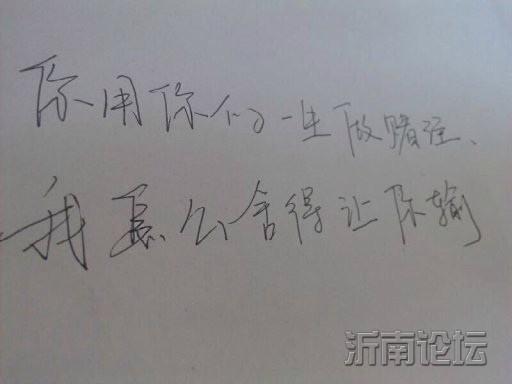 你用你的一生做赌注、
我怎么舍得让你输
沂南论坛